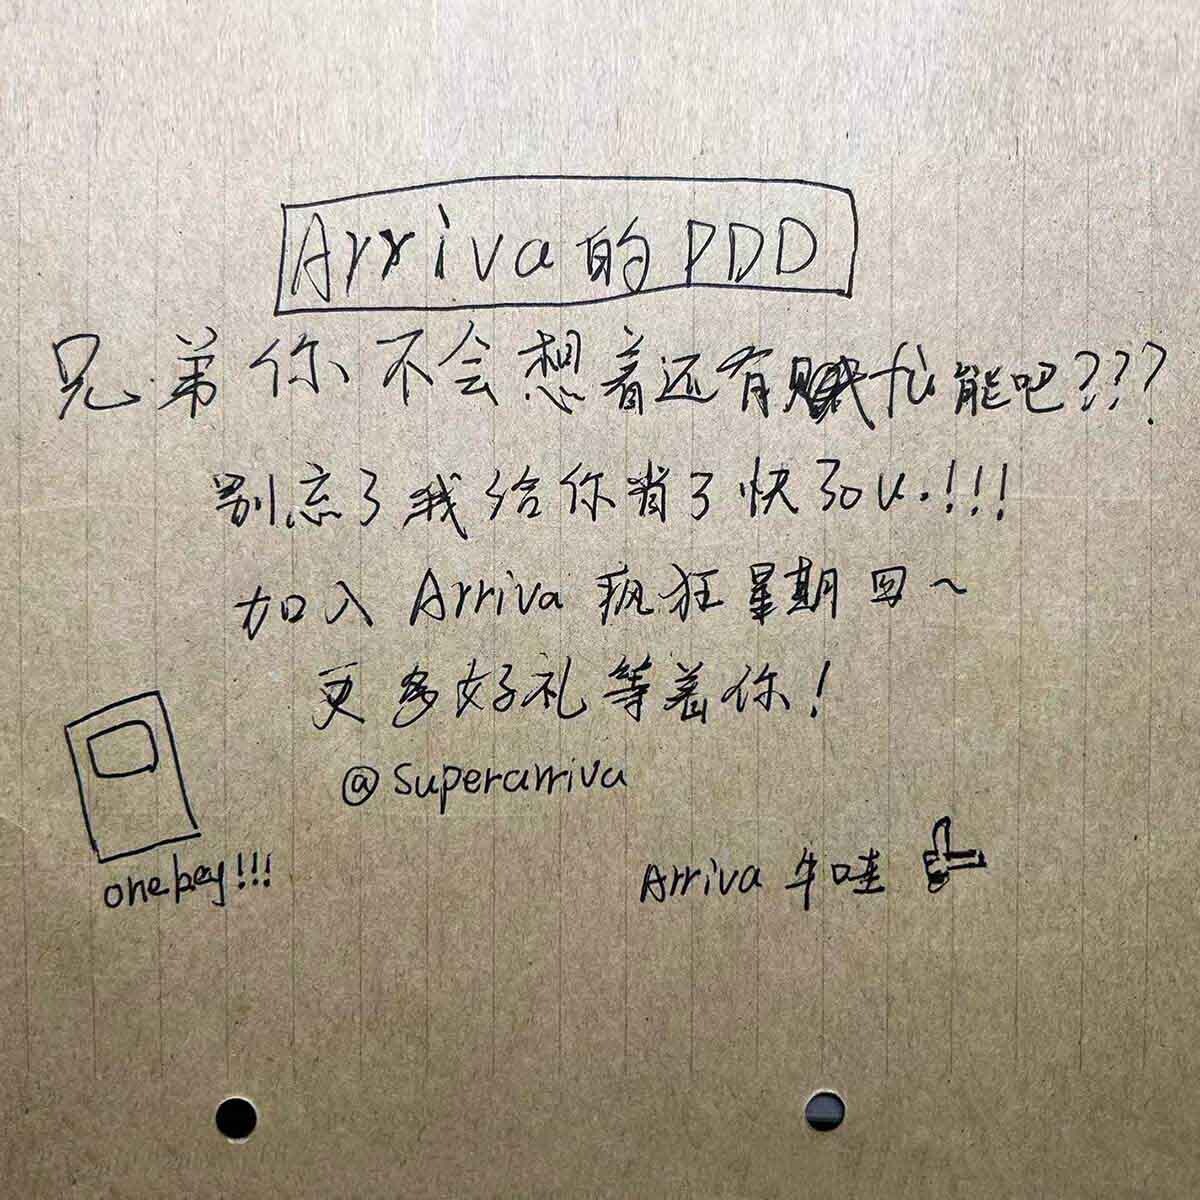 Arriva的PDD
兄弟你不会想着还有赋能吧???
别忘了我给你省了快30U.!!!
加入Arriva疯狂星期四~
更多好礼等着你!
@superarriva
onekey!!!
Arriva牛哇